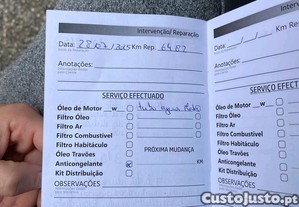 Intervenção/ Reparação
Data: 28/07/2025 Km Rep. 6482
Km
Anotações:
SERVIÇO EFECTUADO
Óleo de Motor __w__ tubo agua
Filtro Óleo
Filtro Ar
Filtro Combustível
Filtro Habitáculo PRÓXIMA MUDANÇA
Óleo Travões
Anticongelante KM
Kit Distribuição
OBSERVAÇÕES
Intervenção/ R
Data: __/__/__
Anotações:
SERVIÇO
Óleo de Motor __w__
Filtro Óleo
Filtro Ar
Filtro Combustível
Filtro Habitáculo
Óleo Travões
Anticongelante
Kit Distribuição
OBSERVAÇÕES
CustoJusto.pt